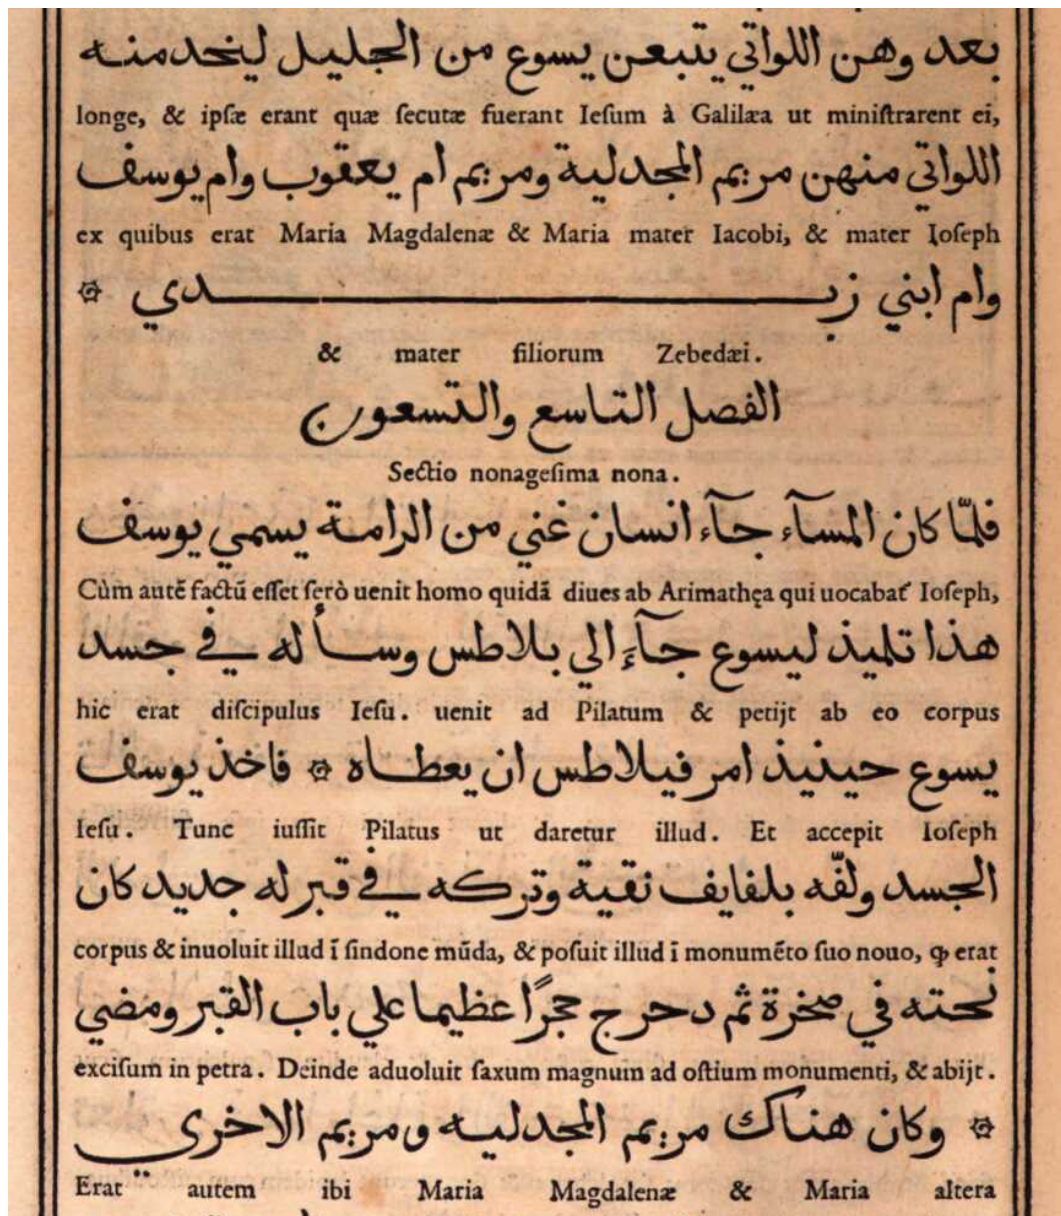 بعد وهن اللواتي يتبعن يسوع من الجليل ليخدمنه
longe, & ipſæ erant quæ ſecutæ fuerant Ieſum à Galilæa ut miniſtrarent ei,
اللواتي منهن مريم المجدلية ومريم ام يعقوب وام يوسف
ex quibus erat Maria Magdalenæ & Maria mater Iacobi, & mater Ioſeph
وام ابني زبدي ۞
& mater filiorum Zebedæi.
الفصل التاسع والتسعون
Sectio nonageſima nona.
فلمّا كان المسآء جآء انسان غني من الرامة يسمي يوسف
Cùm autē factū eſſet ſerò uenit homo quidā diues ab Arimathęa qui uocabat᷑ Ioſeph,
هذا تلميذ ليسوع جآءَ الي بلاطس وسأله في جسد
hic erat diſcipulus Ieſu. uenit ad Pilatum & petijt ab eo corpus
يسوع حينيذ امر فيلاطس ان يعطاه ۞ فاخذ يوسف
Ieſu. Tunc iuſſit Pilatus ut daretur illud. Et accepit Ioſeph
الجسد ولفّه بلفايف نقية وتركه في قبر له جديد كان
corpus & inuoluit illud ī ſindone mūda, & poſuit illud ī monumēto ſuo nouo, ꝙ erat
نحته في صخرة ثم دحرج حجرًا عظيما علي باب القبر ومضي
exciſum in petra. Deinde aduoluit ſaxum magnum ad oſtium monumenti, & abijt.
۞ وكان هناك مريم المجدليه ومريم الاخري
Erat autem ibi Maria Magdalenæ & Maria altera